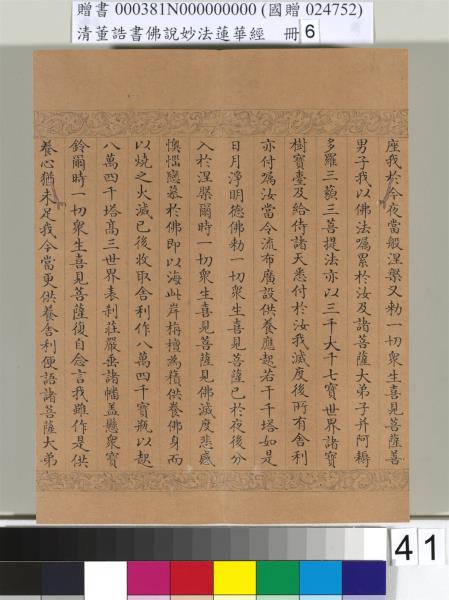 贈書 000381N000000000 (國贈 024752)
清董誥書佛說妙法蓮華經 冊 6
座我於今夜當般涅槃又勅一切眾生喜見菩薩善
男子我以佛法囑累於汝及諸菩薩大弟子并阿耨
多羅三藐三菩提法亦以三千大千七寶世界諸寶
樹寶臺及給侍諸天悉付於汝我滅度後所有舍利
亦付囑汝當令流布廣設供養應起若干千塔如是
日月淨明德佛勅一切眾生喜見菩薩已於夜後分
入於涅槃爾時一切眾生喜見菩薩見佛滅度悲感
懊惱戀慕於佛即以海此岸栴檀為𧂐供養佛身而
以燒之火滅已後收取舍利作八萬四千寶瓶以起
八萬四千塔高三世界表刹莊嚴垂諸幡蓋懸眾寶
鈴爾時一切眾生喜見菩薩復自念言我雖作是供
養心猶未足我今當更供養舍利便語諸菩薩大弟
41